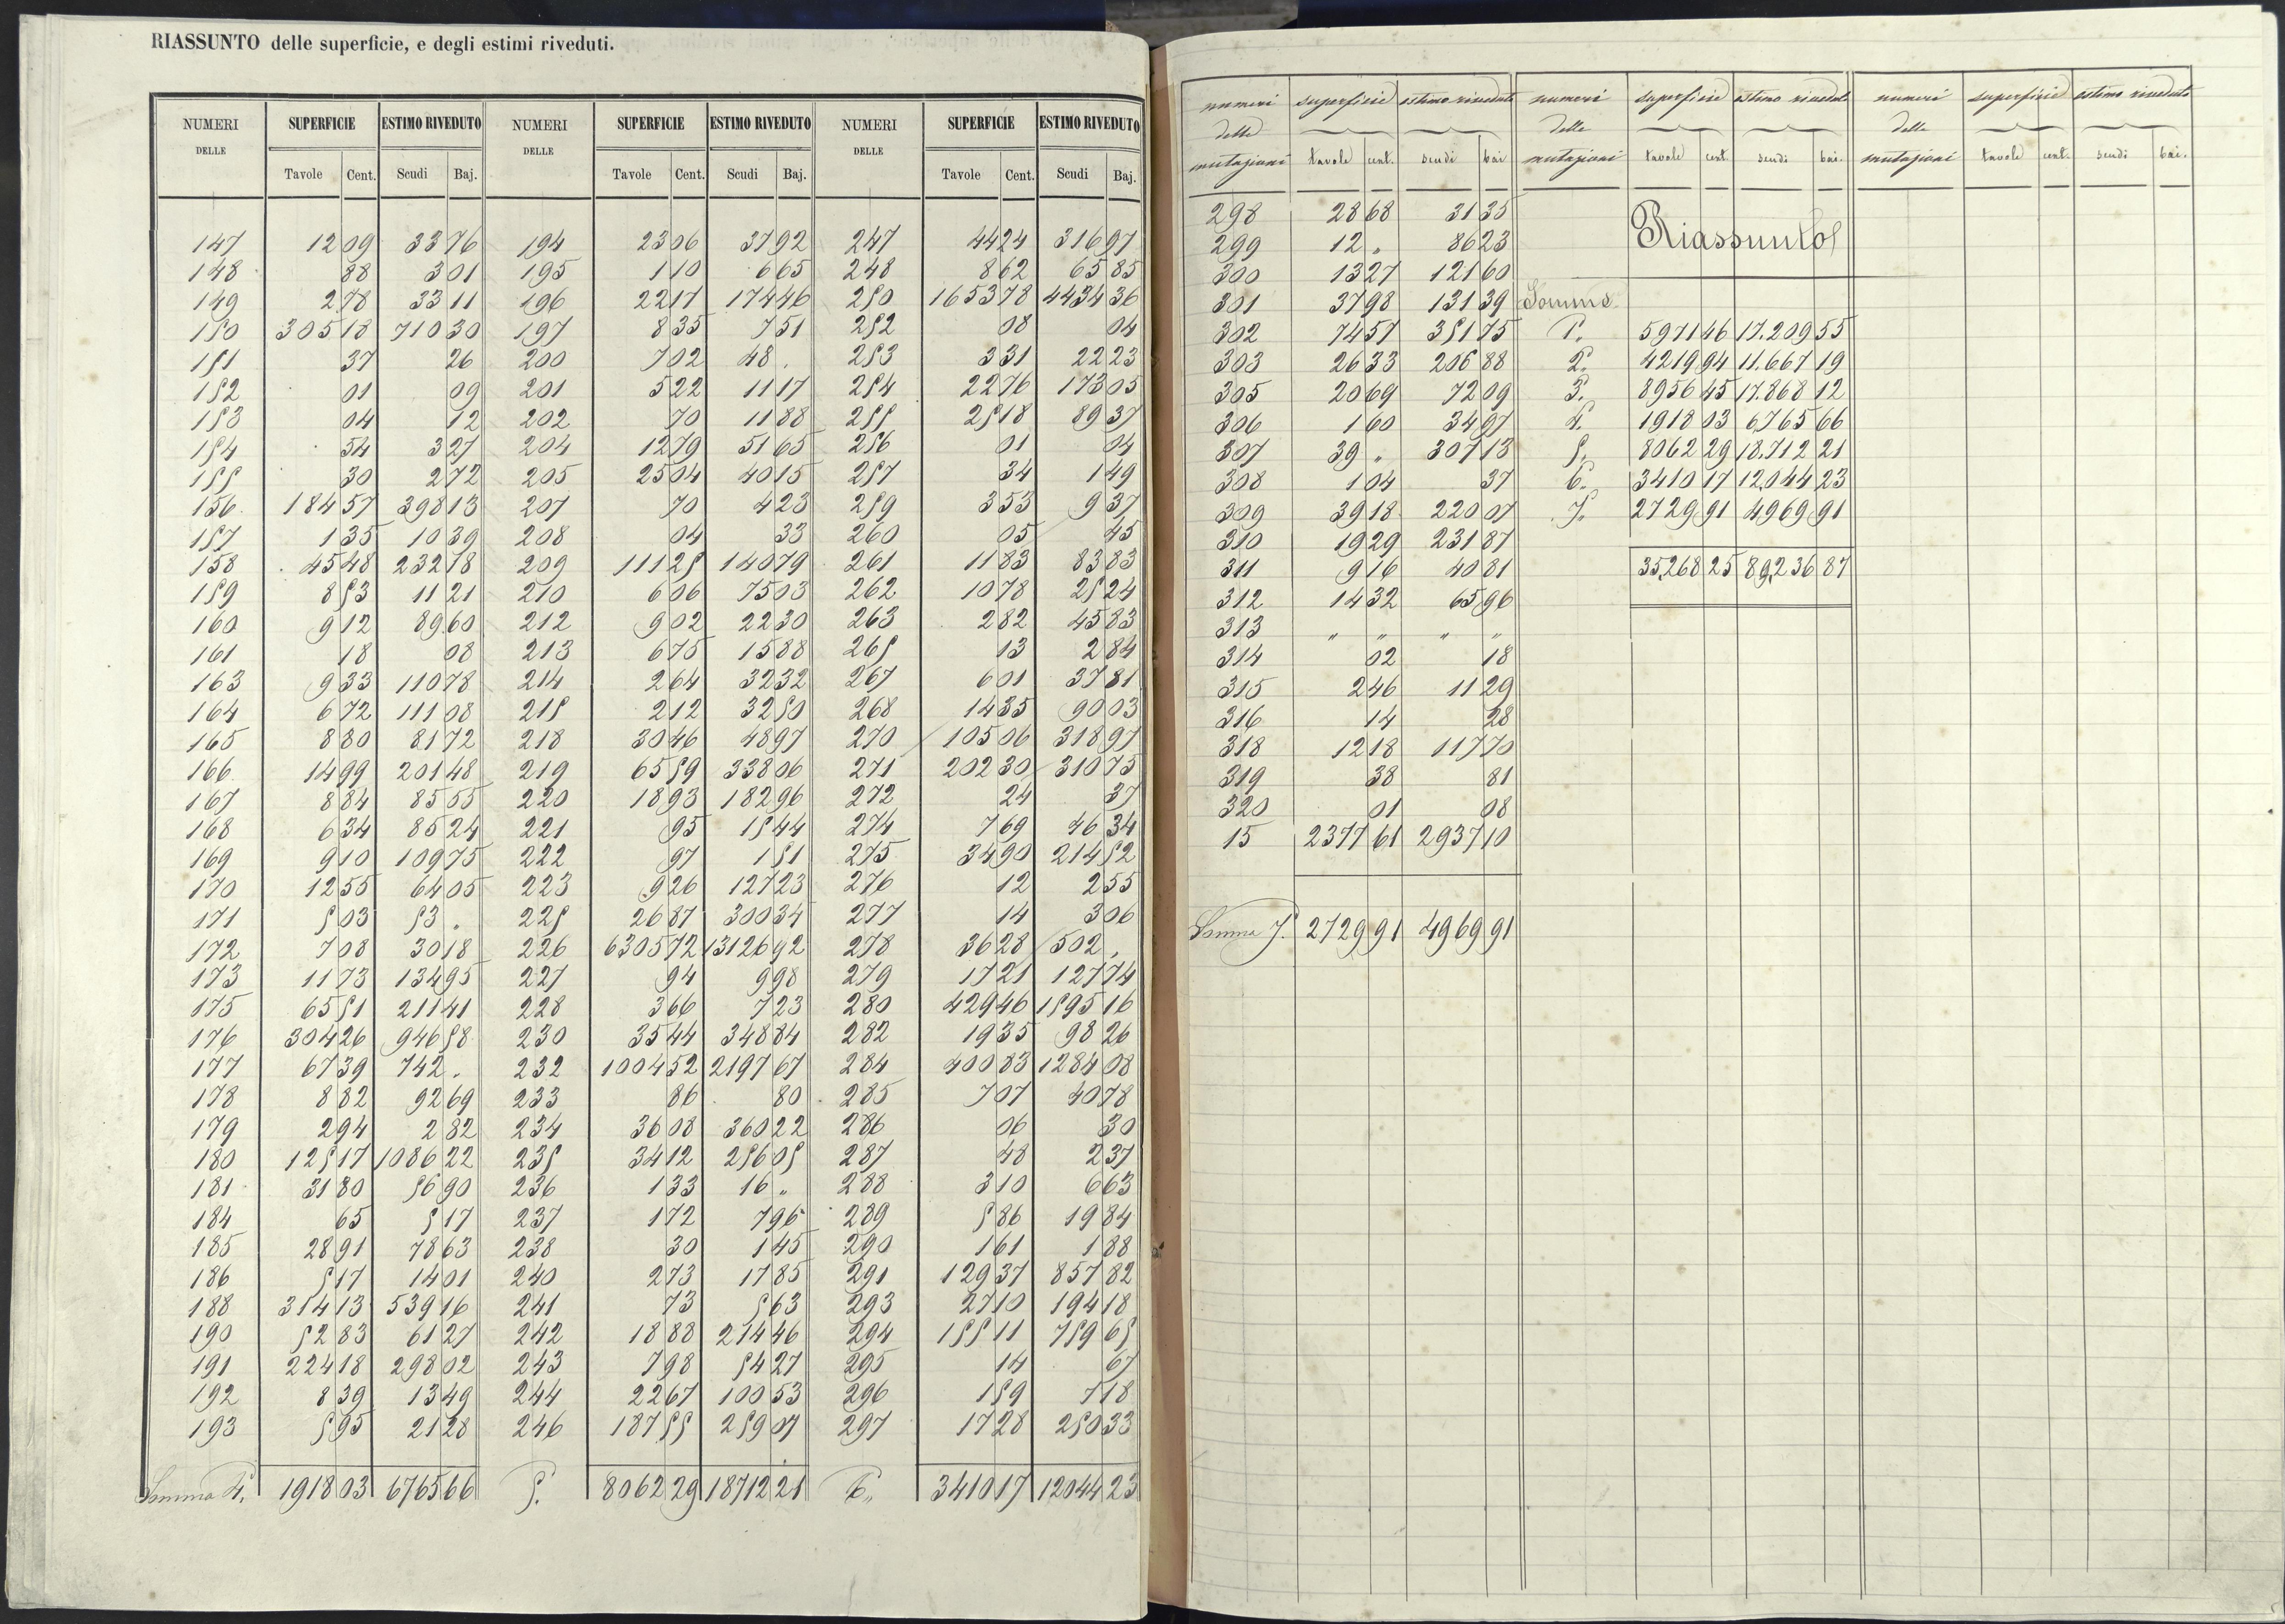 RIASSUNTO delle superficie, e degli estimi riveduti.
NUMERI DELLE | SUPERFICIE | ESTIMO RIVEDUTO | NUMERI DELLE | SUPERFICIE | ESTIMO RIVEDUTO | NUMERI DELLE | SUPERFICIE | ESTIMO RIVEDUTO
Tavole | Cent. | Scudi | Baj. | Tavole | Cent. | Scudi | Baj. | Tavole | Cent. | Scudi | Baj.
147 | 12 09 | 33 76 | 194 | 23 06 | 37 92 | 247 | 44 24 | 316 97
148 | 88 | 3 01 | 195 | 1 10 | 6 65 | 248 | 8 62 | 65 85
149 | 2 78 | 33 11 | 196 | 22 17 | 174 46 | 250 | 1653 78 | 4434 36
150 | 305 18 | 710 30 | 197 | 8 35 | 7 51 | 252 | 08 | 04
151 | 37 | 26 | 200 | 7 02 | 48 . | 253 | 3 31 | 22 23
152 | 01 | 09 | 201 | 5 22 | 11 17 | 254 | 22 76 | 173 05
153 | 04 | 12 | 202 | 70 | 11 88 | 255 | 25 18 | 89 37
154 | 54 | 3 27 | 204 | 12 79 | 51 65 | 256 | 01 | 04
155 | 30 | 2 72 | 205 | 25 04 | 40 15 | 257 | 34 | 1 49
156 | 184 57 | 398 13 | 207 | 70 | 4 23 | 259 | 3 53 | 9 37
157 | 1 35 | 10 39 | 208 | 04 | 33 | 260 | 05 | 45
158 | 45 48 | 232 78 | 209 | 111 25 | 140 79 | 261 | 11 83 | 83 83
159 | 8 53 | 11 21 | 210 | 6 06 | 75 03 | 262 | 10 78 | 25 24
160 | 9 12 | 89 60 | 212 | 9 02 | 22 30 | 263 | 2 82 | 45 83
161 | 18 | 08 | 213 | 6 75 | 15 88 | 265 | 13 | 2 84
163 | 9 33 | 110 78 | 214 | 2 64 | 32 32 | 267 | 6 01 | 37 81
164 | 6 72 | 111 08 | 215 | 2 12 | 32 50 | 268 | 14 35 | 90 03
165 | 8 80 | 81 72 | 218 | 30 46 | 48 97 | 270 | 105 06 | 318 97
166 | 14 99 | 201 48 | 219 | 65 59 | 338 06 | 271 | 202 30 | 310 75
167 | 8 84 | 85 55 | 220 | 18 93 | 182 96 | 272 | 24 | 37
168 | 6 34 | 85 24 | 221 | 95 | 15 44 | 274 | 7 69 | 46 34
169 | 9 10 | 109 75 | 222 | 97 | 1 51 | 275 | 34 90 | 214 52
170 | 12 55 | 64 05 | 223 | 9 26 | 127 23 | 276 | 12 | 2 55
171 | 5 03 | 53 . | 225 | 26 87 | 300 34 | 277 | 14 | 3 06
172 | 7 08 | 30 18 | 226 | 6305 72 | 13126 92 | 278 | 36 28 | 502 .
173 | 11 73 | 134 95 | 227 | 94 | 9 98 | 279 | 17 21 | 127 74
175 | 65 51 | 211 41 | 228 | 3 66 | 7 23 | 280 | 429 46 | 1595 16
176 | 304 26 | 946 58 | 230 | 35 44 | 348 84 | 282 | 19 35 | 98 26
177 | 67 39 | 742 . | 232 | 1004 52 | 2197 67 | 284 | 400 83 | 1284 08
178 | 8 82 | 92 69 | 233 | 86 | 80 | 285 | 7 07 | 40 78
179 | 2 94 | 2 82 | 234 | 36 08 | 360 22 | 286 | 06 | 30
180 | 125 17 | 1086 22 | 235 | 34 12 | 256 05 | 287 | 48 | 2 37
181 | 31 80 | 56 90 | 236 | 1 33 | 16 „ | 288 | 3 10 | 6 63
184 | 65 | 5 17 | 237 | 1 72 | 7 96 | 289 | 5 86 | 19 84
185 | 28 91 | 78 63 | 238 | 30 | 1 45 | 290 | 1 61 | 1 88
186 | 5 17 | 14 01 | 240 | 2 73 | 17 85 | 291 | 129 37 | 857 82
188 | 314 13 | 539 16 | 241 | 73 | 5 63 | 293 | 27 10 | 194 18
190 | 52 83 | 61 27 | 242 | 18 88 | 214 46 | 294 | 155 11 | 759 65
191 | 224 18 | 298 02 | 243 | 7 98 | 54 27 | 295 | 14 | 67
192 | 8 39 | 13 49 | 244 | 22 67 | 100 53 | 296 | 1 59 | 7 18
193 | 5 95 | 21 28 | 246 | 187 55 | 259 07 | 297 | 17 28 | 250 33
Somma 4. | 1918 03 | 6765 66 | 5. | 8062 29 | 18712 21 | 6. | 3410 17 | 12044 23
numeri delle mutazioni | superficie | estimo riveduto | numeri delle mutazioni | superficie | estimo riveduto | numeri delle mutazioni | superficie | estimo riveduto
tavole | cent. | scudi | bai. | tavole | cent. | scudi | bai. | tavole | cent. | scudi | bai.
298 | 28 68 | 31 35
Riassunto
299 | 12 „ | 86 23
300 | 13 27 | 121 60
301 | 37 98 | 131 39 | Somme
302 | 74 57 | 351 75 | 1. | 5971 46 | 17.209 55
303 | 26 33 | 206 88 | 2. | 4219 94 | 11.667 19
305 | 20 69 | 72 09 | 3. | 8956 45 | 17.868 12
306 | 1 60 | 34 97 | 4. | 1918 03 | 6765 66
307 | 39 „ | 307 13 | 5. | 8062 29 | 18,712 21
308 | 1 04 | 37 | 6. | 3410 17 | 12,044 23
309 | 39 18 | 220 07 | 7. | 2729 91 | 4969 91
310 | 19 29 | 231 87
311 | 9 16 | 40 81 | 35,268 25 | 89,236 87
312 | 14 32 | 65 96
313 | „ „ | „ „
314 | 02 | 18
315 | 2 46 | 11 29
316 | 14 | 28
318 | 12 18 | 117 70
319 | 38 | 81
320 | 01 | 08
15 | 2377 61 | 2937 10
Somma 7. | 2729 91 | 4969 91